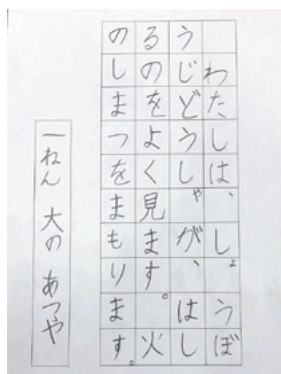 わたしは、しょうぼ
うじどうしゃが、はし
るのをよく見ます。火
のしまつをまもります。
一ねん 大の あつや